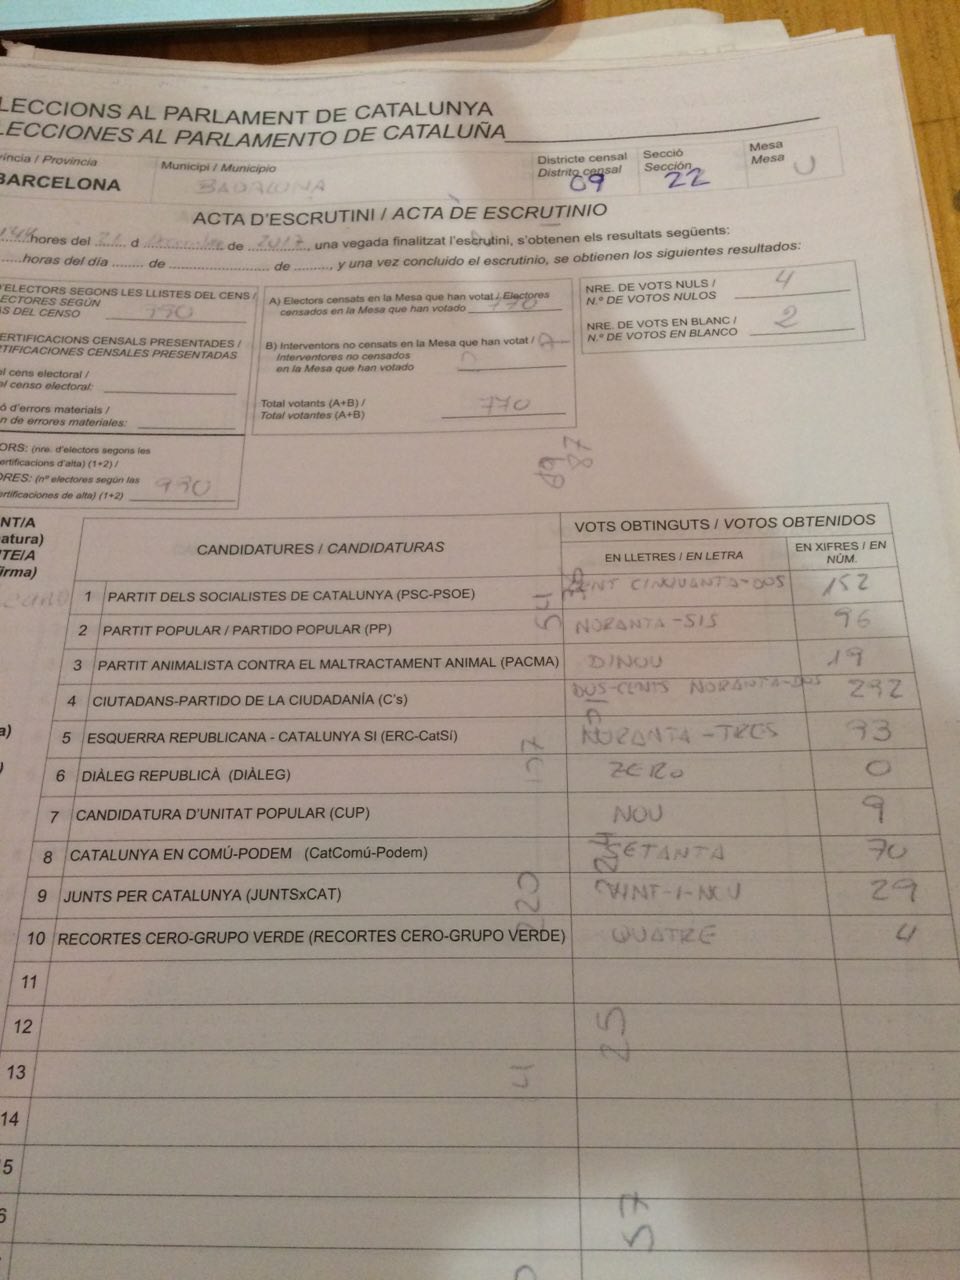 LECCIONS AL PARLAMENT DE CATALUNYA
LECCIONES AL PARLAMENTO DE CATALUÑA
víncia / Provincia
BARCELONA
Municipi / Municipio
BADALONA
Districte censal
Distrito censal
09
Secció
Sección
22
Mesa
Mesa
U
ACTA D'ESCRUTINI / ACTA DE ESCRUTINIO
hores del 21 d Desembre de 2017, una vegada finalitzat l'escrutini, s'obtenen els resultats següents:
horas del día ........ de ........................ de ........, y una vez concluido el escrutinio, se obtienen los siguientes resultados:
D'ELECTORS SEGONS LES LLISTES DEL CENS /
ECTORES SEGÚN
AS DEL CENSO
ERTIFICACIONS CENSALS PRESENTADES /
TIFICACIONES CENSALES PRESENTADAS
al cens electoral /
el censo electoral:
ó d'errors materials /
n de errores materiales:
ORS: (nre. d'electors segons les
ertificacions d'alta) (1+2) /
ORES: (nº electores según las
ertificaciones de alta) (1+2)
A) Electors censats en la Mesa que han votat / Electores
censados en la Mesa que han votado 770
B) Interventors no censats en la Mesa que han votat /
Interventores no censados
en la Mesa que han votado
Total votants (A+B) /
Total votantes (A+B) 770
NRE. DE VOTS NULS /
N.º DE VOTOS NULOS 4
NRE. DE VOTS EN BLANC /
N.º DE VOTOS EN BLANCO 2
89
87
NT/A
atura)
TE/A
firma)
CANDIDATURES / CANDIDATURAS
VOTS OBTINGUTS / VOTOS OBTENIDOS
EN LLETRES / EN LETRA
EN XIFRES / EN
NÚM.
1 PARTIT DELS SOCIALISTES DE CATALUNYA (PSC-PSOE) CENT CINQUANTA-DOS 152
2 PARTIT POPULAR / PARTIDO POPULAR (PP) NORANTA-SIS 96
3 PARTIT ANIMALISTA CONTRA EL MALTRACTAMENT ANIMAL (PACMA) DINOU 19
4 CIUTADANS-PARTIDO DE LA CIUDADANÍA (C's) DOS-CENTS NORANTA-DOS 292
5 ESQUERRA REPUBLICANA - CATALUNYA SI (ERC-CatSí) NORANTA-TRES 93
6 DIÀLEG REPUBLICÀ (DIÀLEG) ZERO 0
7 CANDIDATURA D'UNITAT POPULAR (CUP) NOU 9
8 CATALUNYA EN COMÚ-PODEM (CatComú-Podem) SETANTA 70
9 JUNTS PER CATALUNYA (JUNTSxCAT) VINT-I-NOU 29
10 RECORTES CERO-GRUPO VERDE (RECORTES CERO-GRUPO VERDE) QUATRE 4
11
12
13
14
5
6
54
220
25
4
57